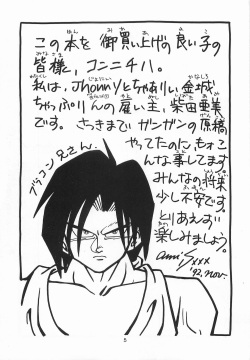 この本を御買い上げの良い子の
皆様，コンニチハ。
私は、Jhonnyとちゃありい金城
ちゃぷりんの雇い主，柴田亜美
です。さっきまでガンガンの原稿
やってたのに、もォこ
んな事してます。
みんなの将来
少し不安です。
とりあえず
楽しみましょう。
ami'S xxx
'92. nov.
ブラコン兄さん。
5